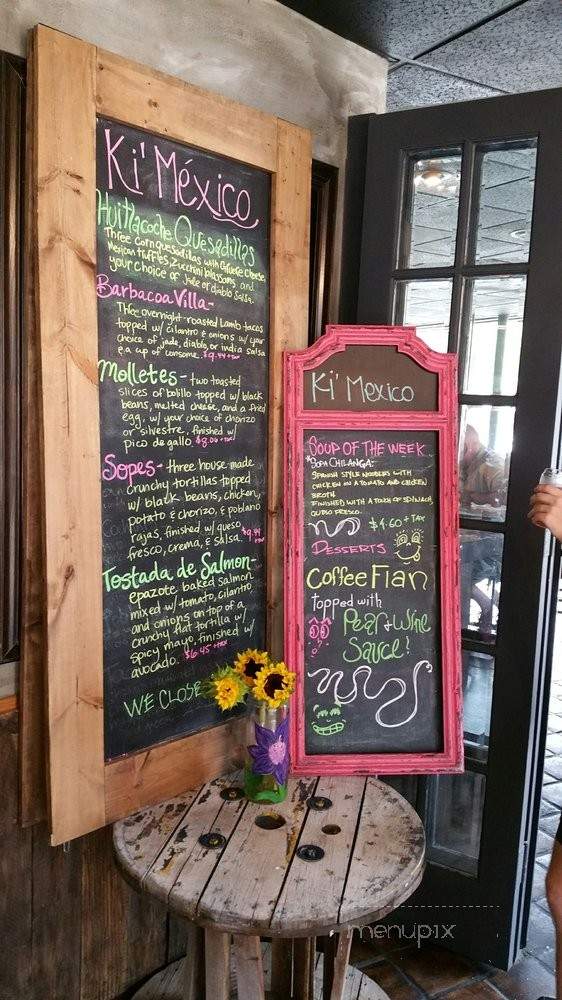 Ki' México
Huitlacoche Quesadillas
Three corn quesadillas with cheese
Mexican truffles, Zucchini blossoms and
your choice of jade or diablo salsa.
Barbacoa Villa-
Three overnight-roasted Lamb tacos
topped w/ cilantro & onions w/ your
choice of jade, diablo, or india salsa
& a cup of consome. $9.44 +tax
Molletes- two toasted
slices of bolillo topped w/ black
beans, melted cheese, and a fried
egg, w/ your choice of chorizo
or silvestre, finished w/
pico de gallo. $8.06 +tax
Sopes- three house made
crunchy tortillas topped
w/ black beans, chicken,
potato & chorizo, & poblano
rajas, finished w/ queso
fresco, crema, & salsa. $9.44
+tax
Tostada de Salmon-
epazote baked salmon
mixed w/ tomato, cilantro
and onions on top of a
crunchy flat tortilla w/
spicy mayo, finished w/
avocado. $6.45 +tax
WE CLOSE
Ki' Mexico
SOUP OF THE WEEK
*SOPA CHILANGA:
SPANISH STYLE NOODLES WITH
CHICKEN IN A TOMATO AND CHICKEN
BROTH.
FINISHED WITH A TOUCH OF SPINACH,
QUESO FRESCO.
$4.60 + TAX
DESSERTS
Coffee Flan
topped with
Pear & Wine
Sauce!
menupix